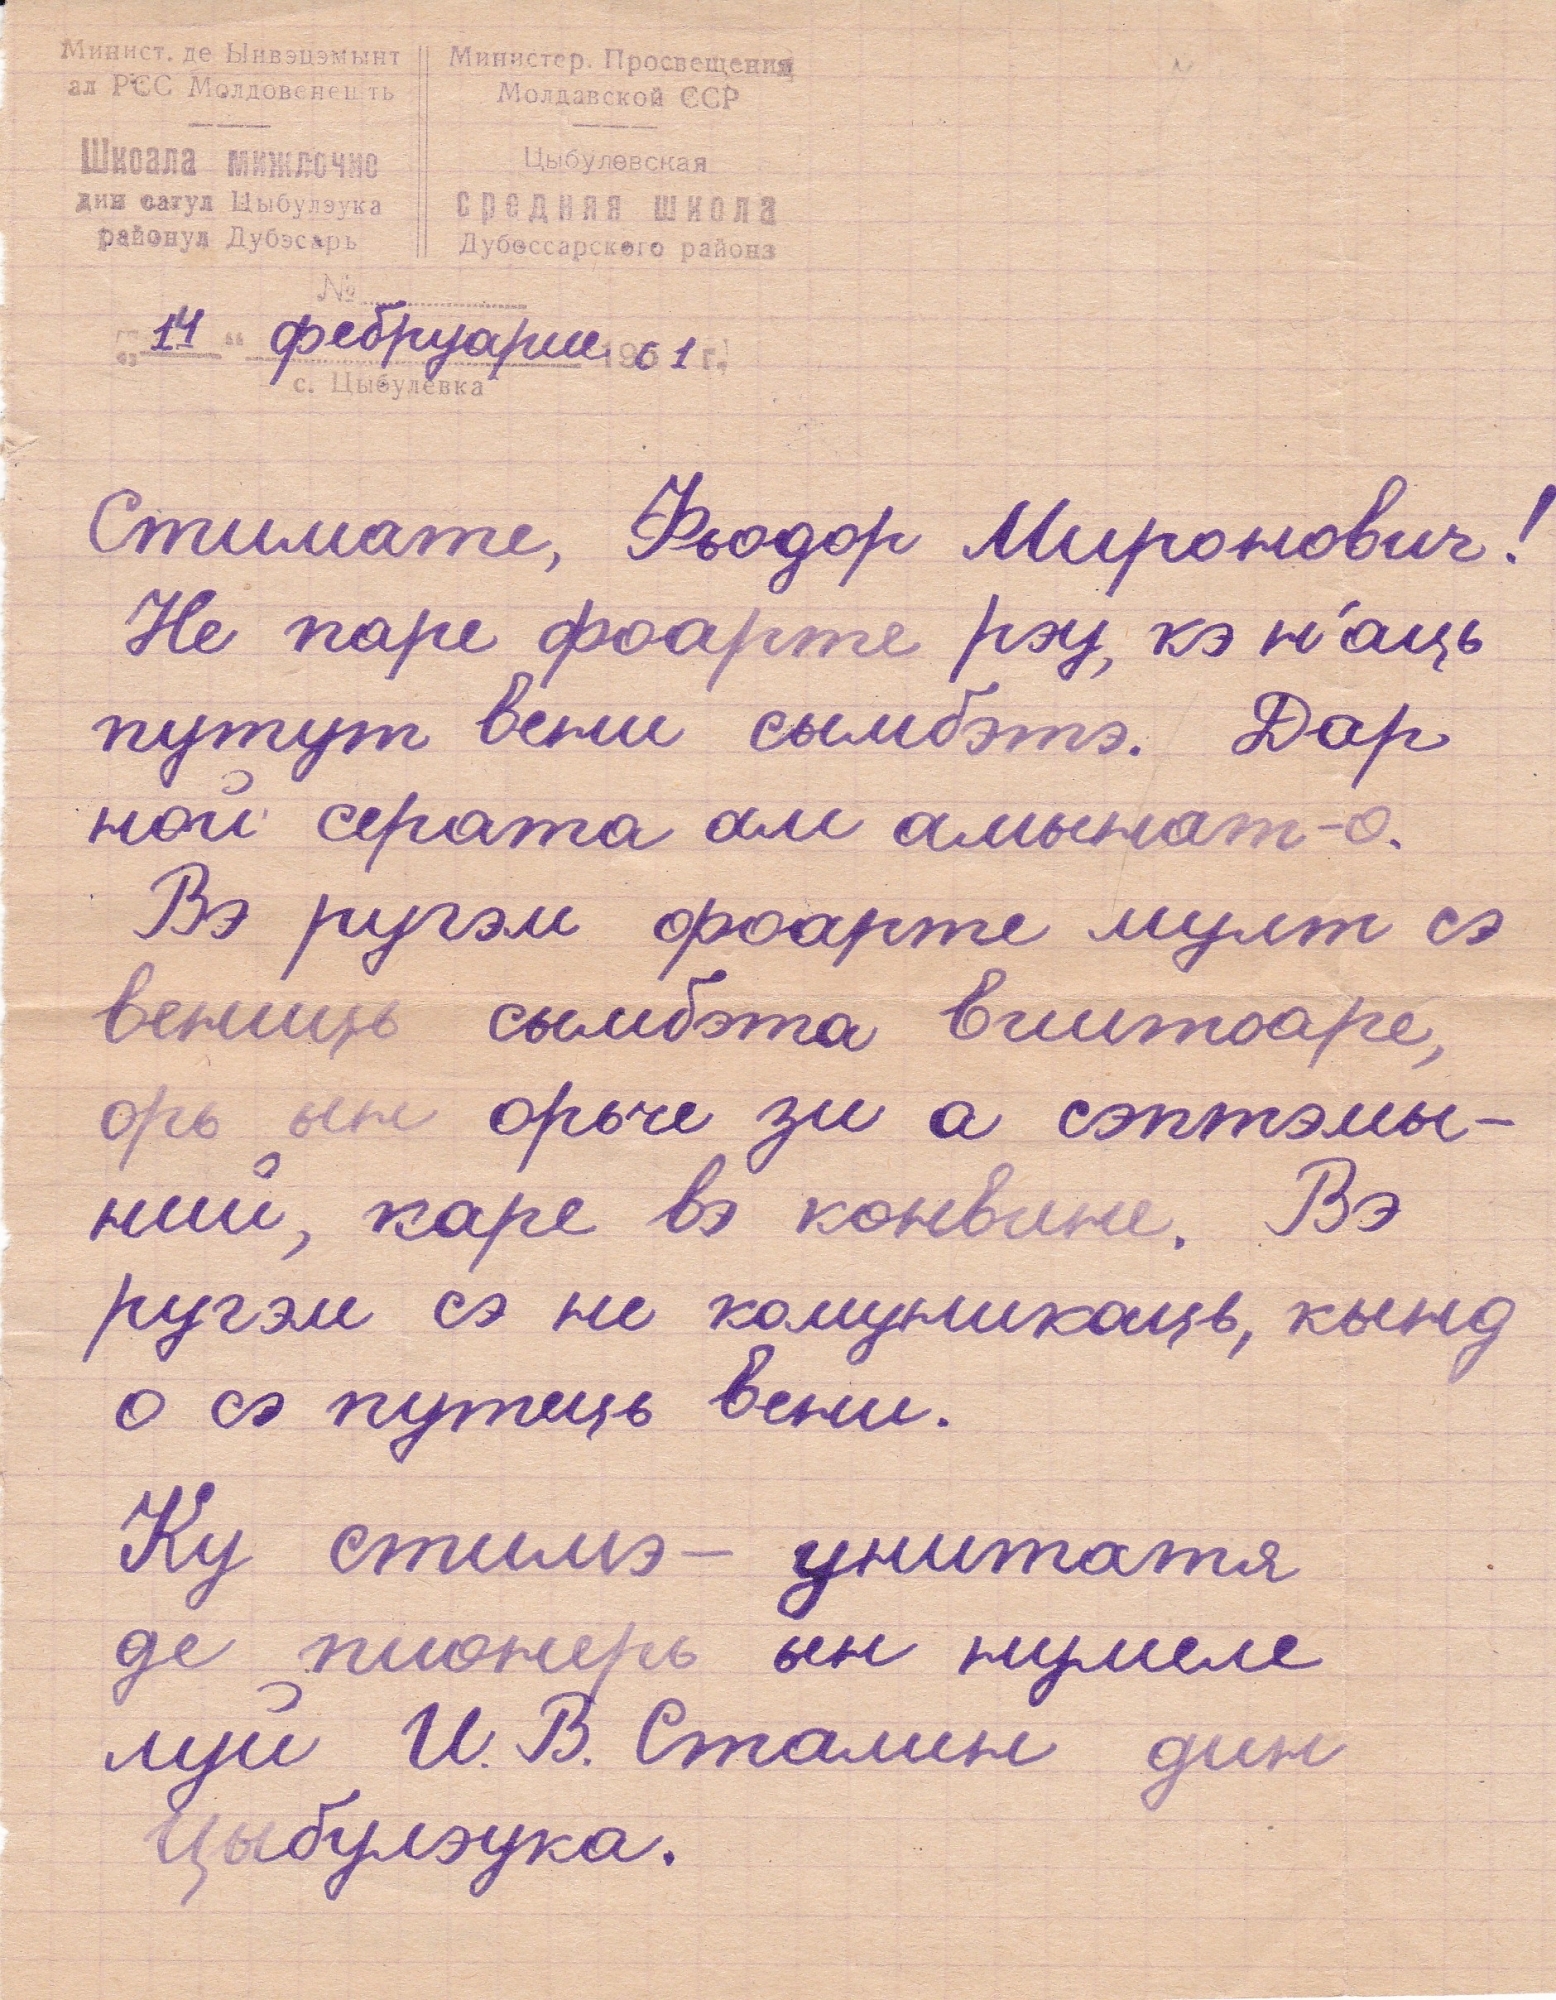 Минист. де Ынвэцэмынт
ал РСС Молдовенешть
Шкоала мижлочие
дин сатул Цыбулэука
районул Дубэсарь
Министер. Просвещения
Молдавской ССР
Цыбулевская
средняя школа
Дубоссарского района
№
"14" фебруарие 1961 г.
с. Цыбулевка
Стимате, Фьодор Миронович!
Не паре фоарте рэу, кэ н'аць
путут вени сымбэтэ. Дар
ной серата ам амынат-о.
Вэ ругэм фоарте мулт сэ
вениць сымбэта виитоаре,
орь ын орьче зи а сэптэмы-
ний, каре вэ конвине. Вэ
ругэм сэ не комуникаць, кынд
о сэ путець вени.
Ку стимэ- унитатя
де пионерь ын нумеле
луй И. В. Сталин дин
Цыбулэука.